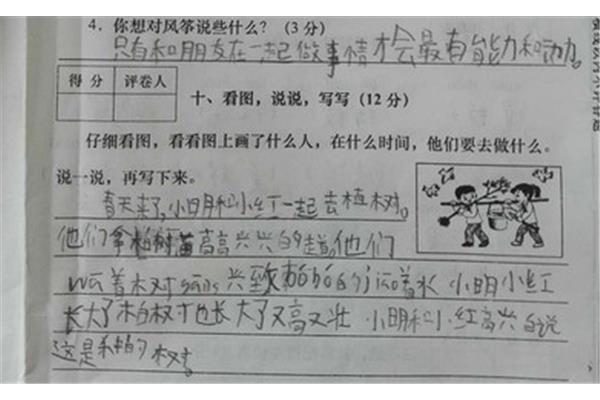 4. 你想对风筝说些什么？（3 分）
只有和朋友在一起做事情才会最有能力和动力。
得 分 评卷人
十、看图，说说，写写（12 分）
仔细看图，看看图上画了什么人，在什么时间，他们要去做什么。
说一说，再写下来。
春天来了，小明和小红一起去植树。
他们拿 树苗高高兴兴的 他们
着树 兴致勃勃的 着水 小明小红
长大了 树也长大了又高又壮 小明和小红高兴的说
这是 的树。